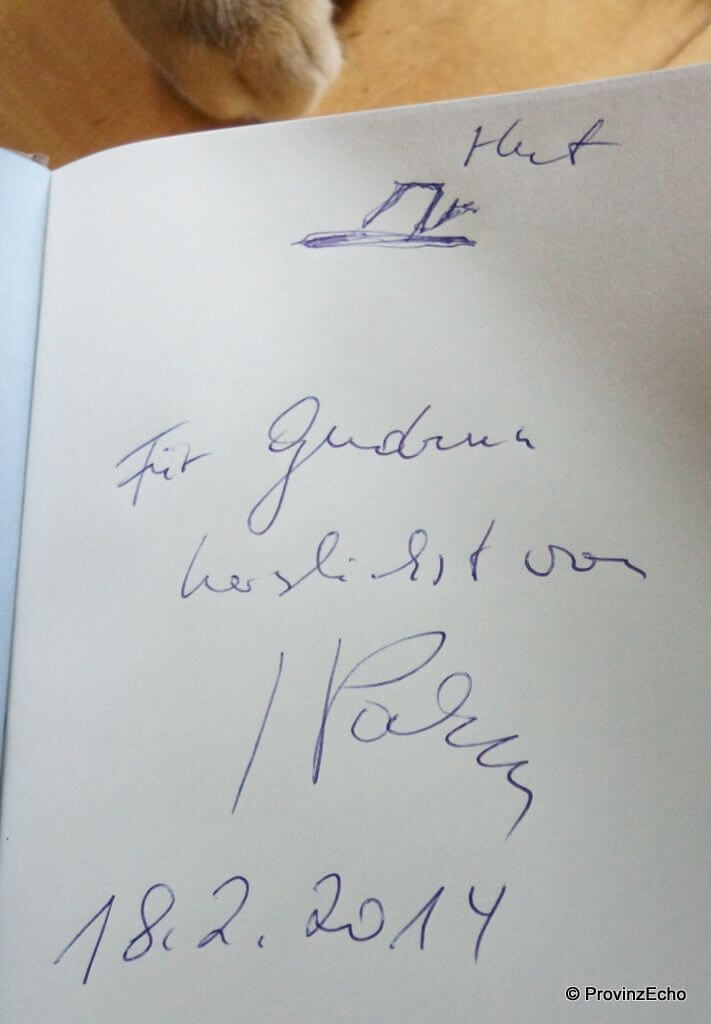 Hut
Für Gudrun
herzlichst von
18.2.2014
© ProvinzEcho